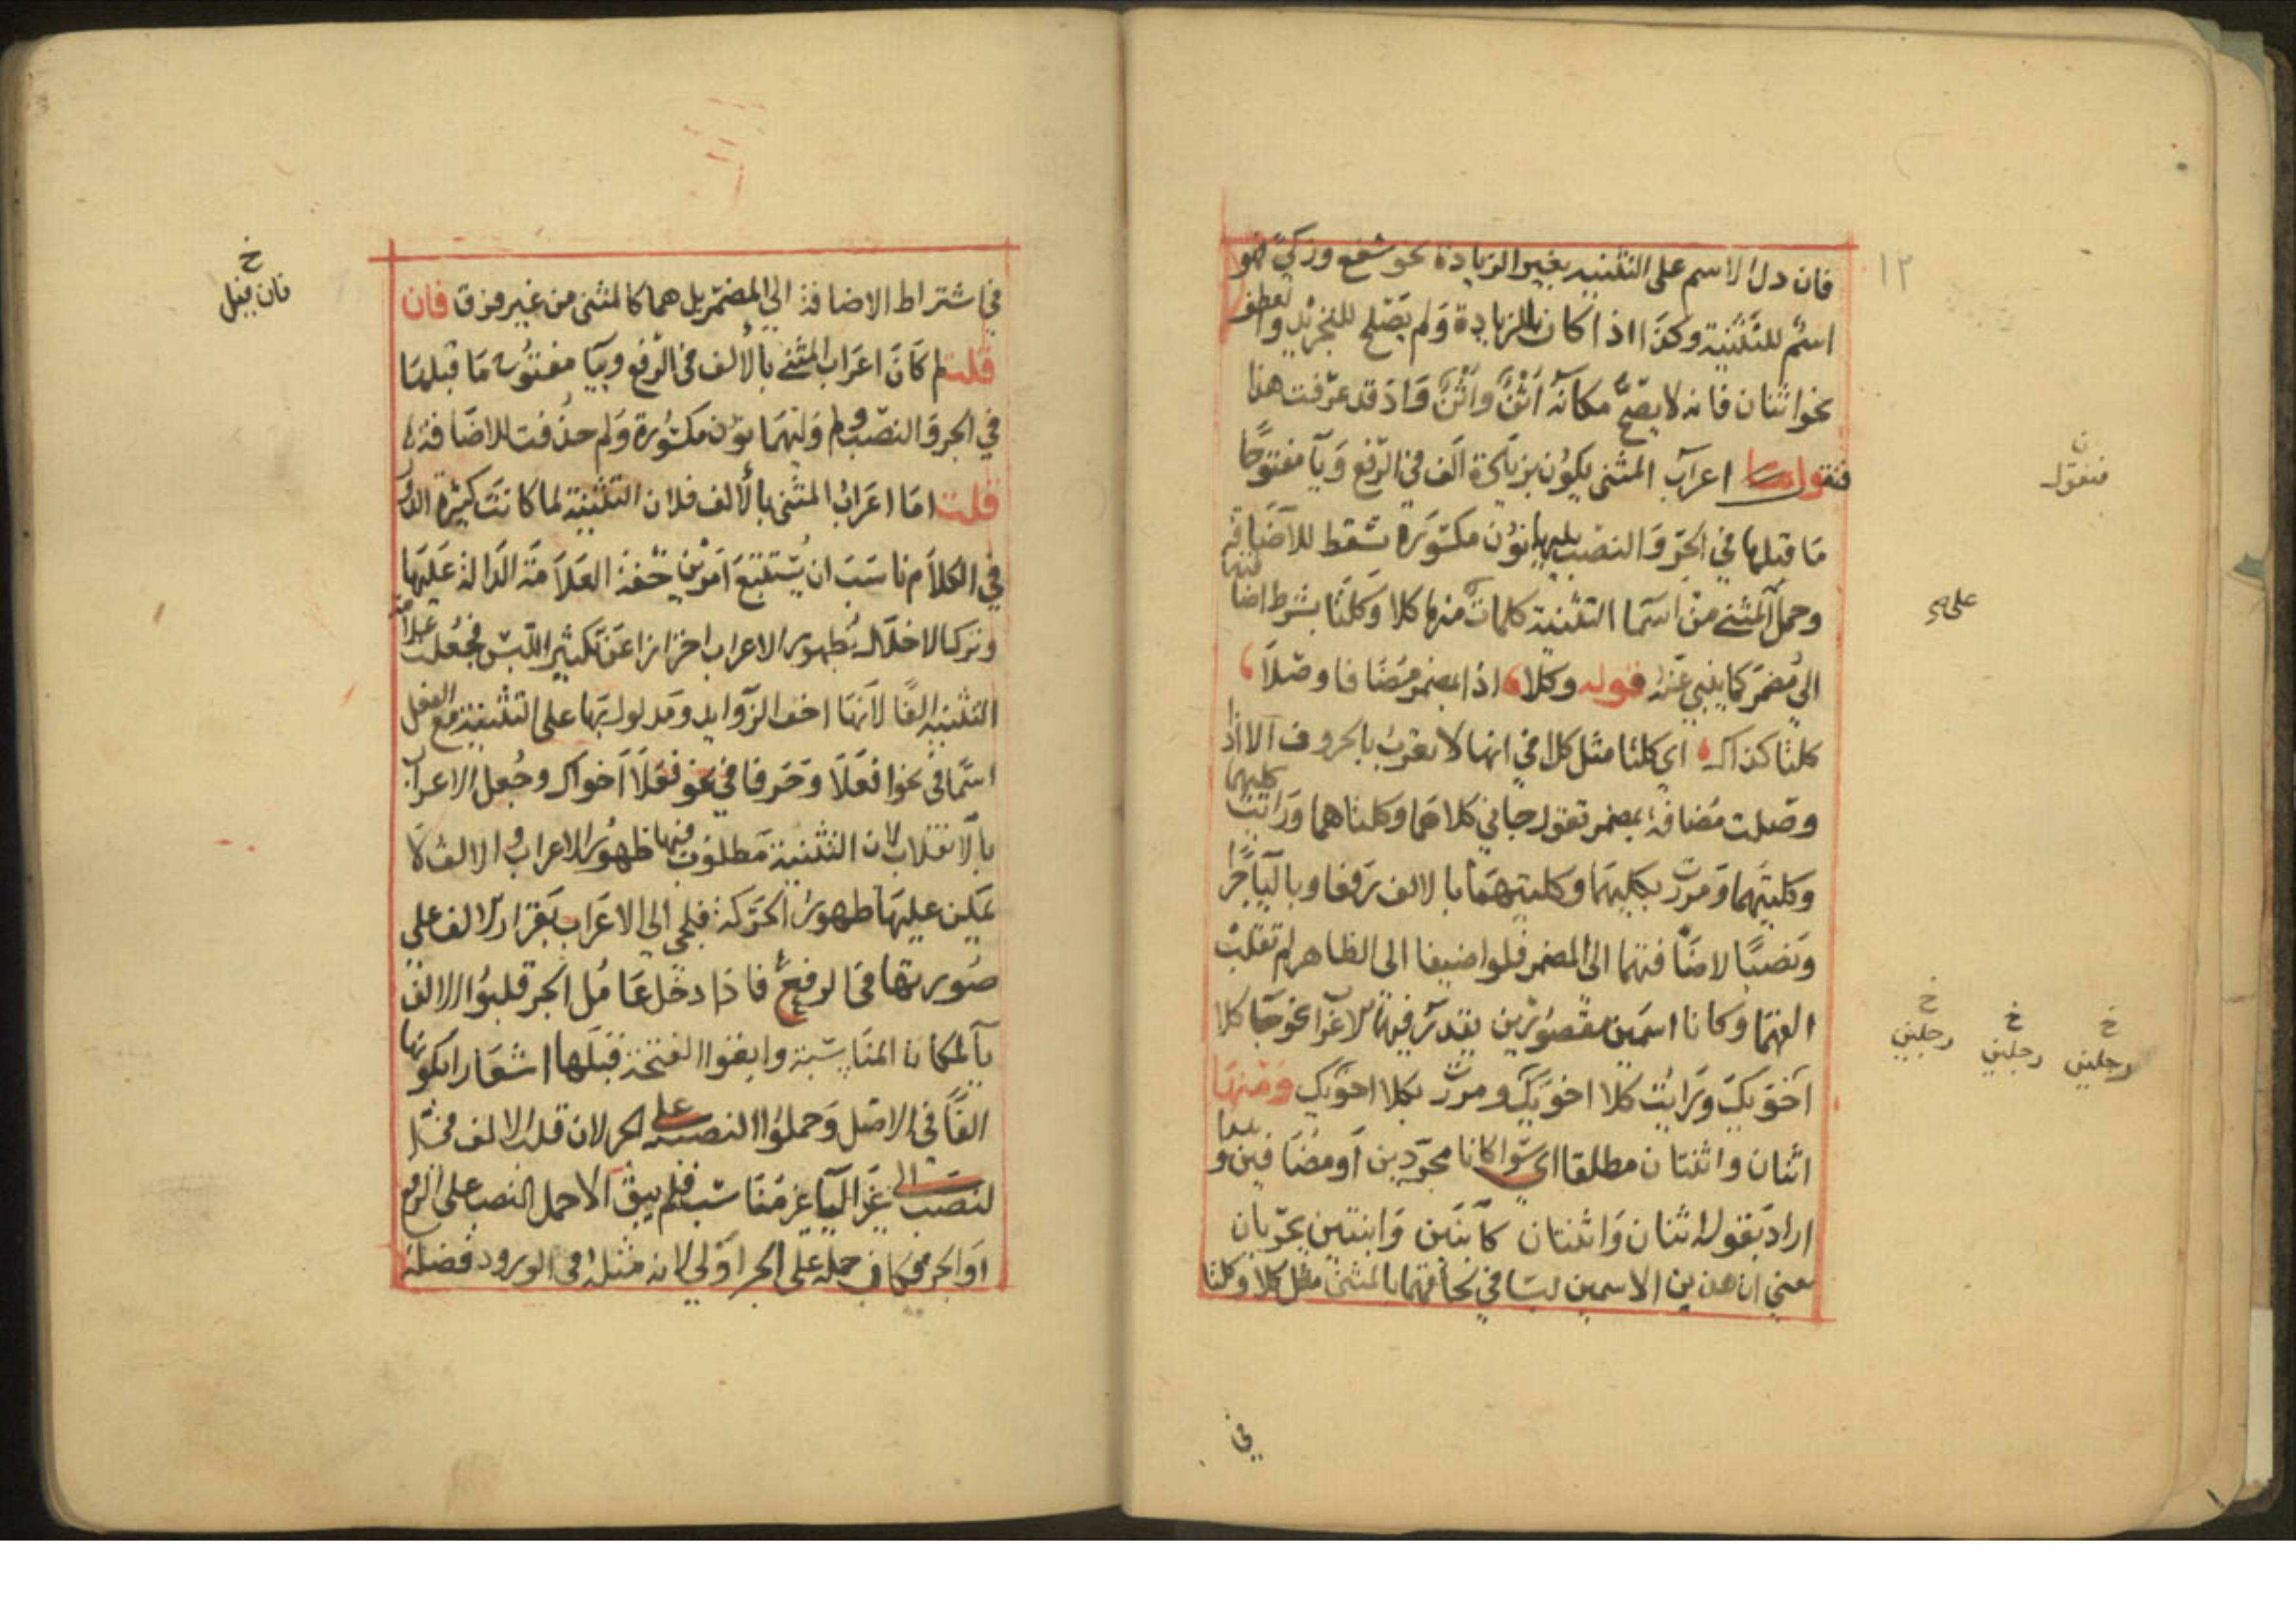 ١٢
فان دل الاسم على التثنيه بغير الزيادة نحو شفع وزكى فهو
اسم للتثنية وكذا اذا كان بالزيادة ولم يصلح للتجريد والعطف
نحو اثنان فانه لا يصح مكانه اثن واثن واذ قد عرفت هذا
فنقول اعراب المثنى يكون بزيادة الف في الرفع ويا مفتوحا
ما قبلها في الجر والنصب يليهما نون مكسورة تسقط للاضافة
وحمل المثنى من اسما التثنية كلمات منها كلا وكلتا بشرط اضافتهما
الى مضمر كما ينبي عنه قوله وكلا اذا بمضمر مضافا وصلا
كلتا كذاك اي كلتا مثل كلا في انها لا تعرب بالحروف الا اذا
وصلت مضافة بمضمر تقول جاني كلاهما وكلتاهما ورايت كليهما
وكلتيهما ومررت بكليهما وكلتيهما بالالف رفعا وباليا جرا
ونصبا لاضافتهما الى المضمر فلو اضيفا الى الظاهر لم تقلب
الفهما وكانا اسمين مقصورين يقدر فيهما الاعراب نحو جا كلا
اخويك ورايت كلا اخويك ومررت بكلا اخويك ومنها
اثنان واثنتان مطلقا اي سوا كانا مجردين او مضافين و
اراد بقوله اثنان واثنتان كابنين وابنتين يجريان
يعني ان هذين الاسمين ليسا في لحاقهما بالمثنى مثل كلا وكلتا
في
فنقول
على
خ
رجلين
خ
رجلين
خ
رجلين
في اشتراط الاضافة الى المضمر بل هما كالمثنى من غير فرق فان
قلت لم كان اعراب المثنى بالالف في الرفع وبيا مفتوح ما قبلها
في الجر والنصب ولم وليهما نون مكسورة ولم حذفت للاضافة
قلت اما اعراب المثنى بالالف فلان التثنية لما كانت كثيرة الدور
في الكلام ناسب ان يستتبع امرين خفة العلامة الدالة عليها
وترك الاخلال بظهور الاعراب احترازا عن تكثير اللبس فجعلت علامة
التثنيه الفا لانها اخف الزوايد ومدلول بها على التثنية مع الفعل
اسما في نحو افعلا وحرفا في نحو فعلا اخواك وجعل الاعراب
بالانقلاب لان التثنية مطلوب فيها ظهور الاعراب والالف لا
يمكن عليها ظهور الحركة فلجي الى الاعراب بقرار الالف على
صورتها في الرفع فاذا دخل عامل الجر قلبوا الالف
يا لمكان المناسبة وابقوا الفتحة قبلها اشعارا بكونها
الفا في الاصل وحملوا النصب على الجر لان قلب الالف في
النصب الى غير اليا غير مناسب فلم يبق الا حمل النصب على الرفع
او الجر فكان حمله على الجر اولى لانه مثله في الورود فضلة
خ
فان قيل